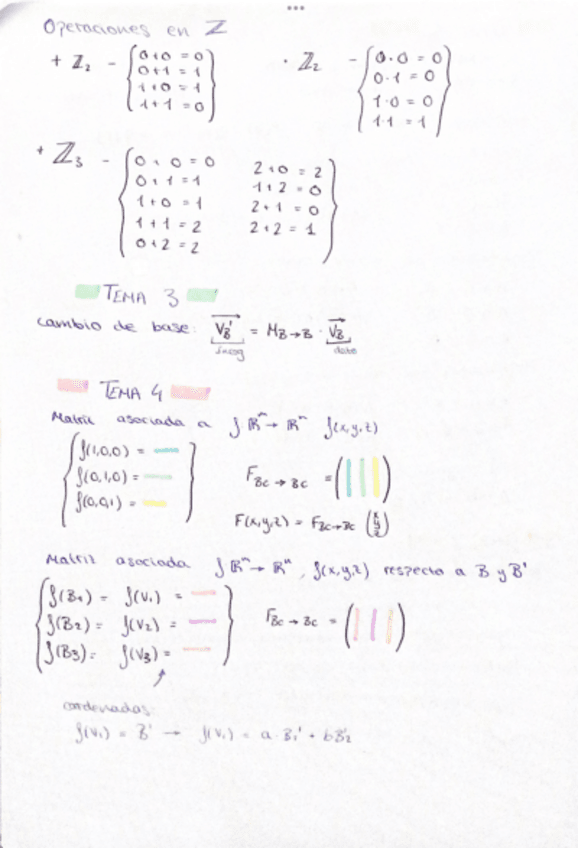 Operaciones en ℤ
+ ℤ₂ - { 0+0 = 0
0+1 = 1
1+0 = 1
1+1 = 0 }
· ℤ₂ - { 0·0 = 0
0·1 = 0
1·0 = 0
1·1 = 1 }
+ ℤ₃ - { 0+0=0 2+0 = 2
0+1=1 1+2 = 0
1+0 = 1 2+1 = 0
1+1 = 2 2+2 = 1
0+2 = 2 }
TEMA 3
cambio de base: V_B' = M_B→B · V_B
incog dato
TEMA 4
Matriz asociada a f ℝᵐ→ ℝⁿ f(x,y,z)
f(1,0,0) =
f(0,1,0) =
f(0,0,1) =
F_Bc→Bc = ( )
F(x,y,z) = F_Bc→Bc (x y z)
Matriz asociada f ℝᵐ→ ℝⁿ, f(x,y,z) respecto a B y B'
f(B₁) = f(V₁) =
f(B₂) = f(V₂) =
f(B₃) = f(V₃) =
F_Bc→Bc = ( )
cordenadas:
f(V₁) = B' → f(V₁) = a·B₁' + bB₂'